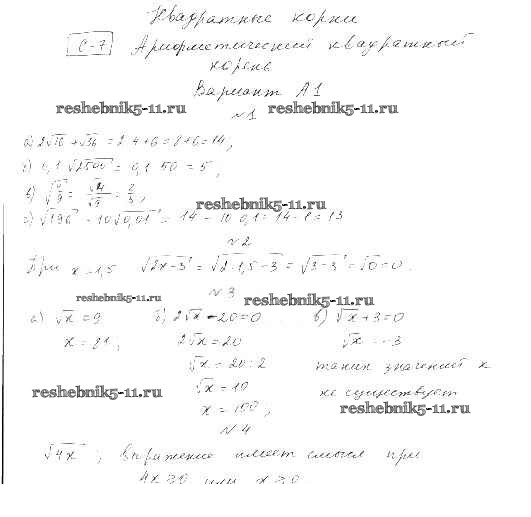 Квадратные корни
С-7 Арифметический квадратный
корень
Вариант А1
reshebnik5-11.ru reshebnik5-11.ru
№1
а) 2√16 + √36 = 2·4+6 = 8+6 = 14;
б) 0,1·√2500 = 0,1·50 = 5;
в) √4/9 = √4/√9 = 2/3;
reshebnik5-11.ru
г) √196 - 10√0,01 = 14 - 10·0,1 = 14-1 = 13
№2
При x=1,5 √2x-3 = √2·1,5-3 = √3-3 = √0 = 0.
№3
reshebnik5-11.ru reshebnik5-11.ru
а) √x = 9 б) 2√x - 20 = 0 в) √x + 3 = 0
x = 81; 2√x = 20 √x = -3
√x = 20:2 таких значений x
reshebnik5-11.ru √x = 10 не существует
x = 100; reshebnik5-11.ru
№4
√4x ; выражение имеет смысл при
4x ≥ 0 или x ≥ 0